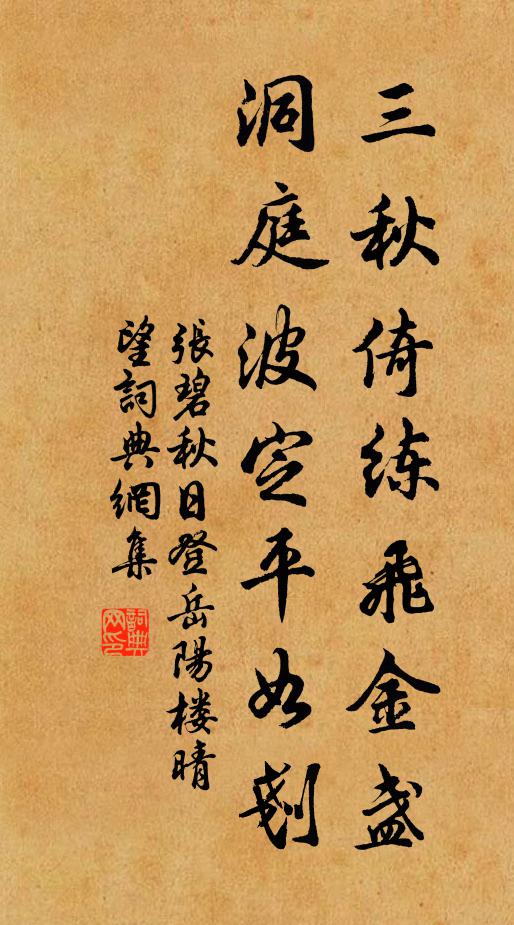 三秋倚练飛金盏
洞庭波定平如剗
張碧秋日登岳陽楼晴
望詞典網集
詞典
网印